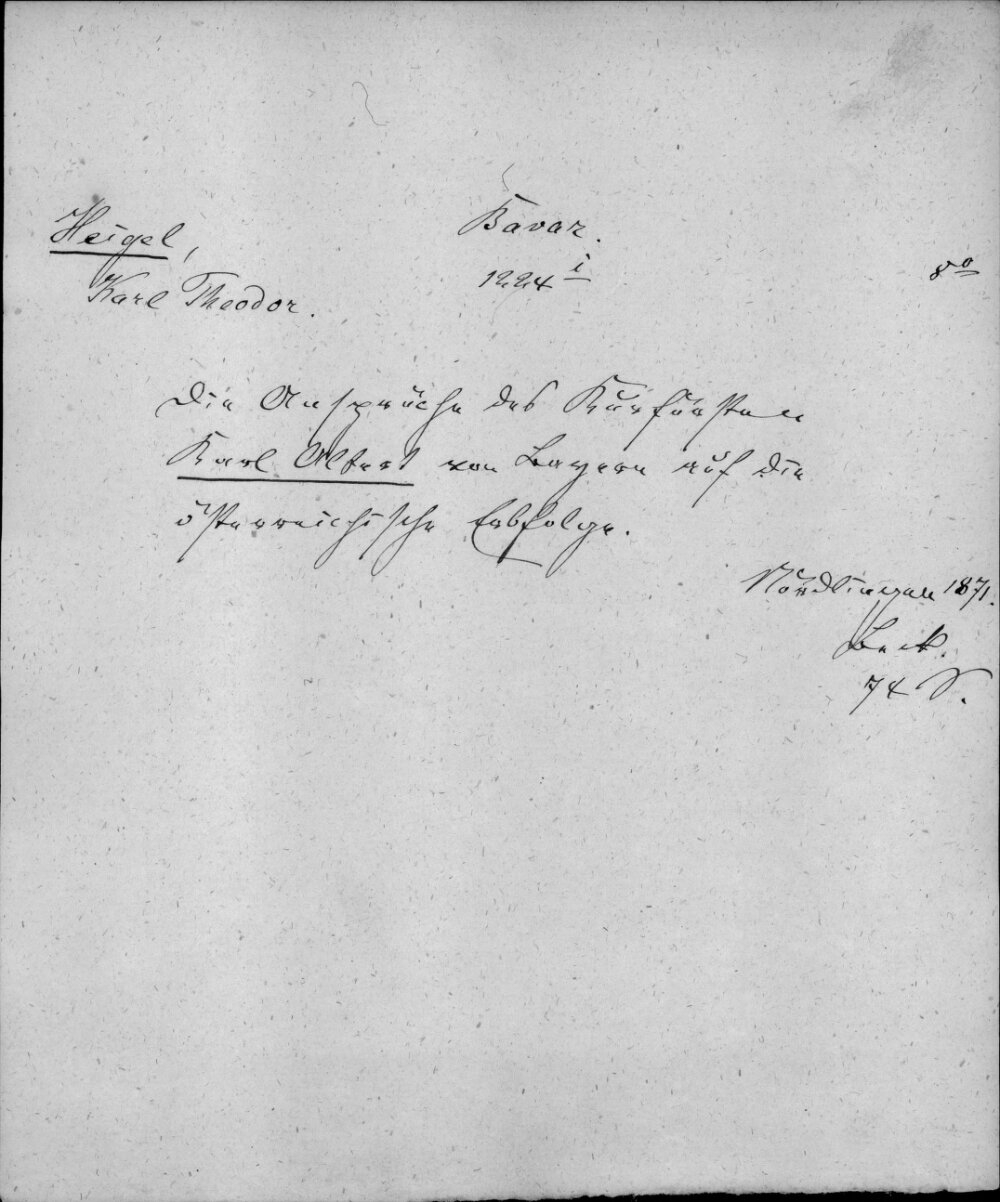 Heigel,
Karl Theodor.
Bavar.
1224 i
8o
Die Ansprüche des Kurfürsten
Karl Albert von Bayern auf die
österreichische Erbfolge.
Nördlingen 1871.
Beck.
74 S.